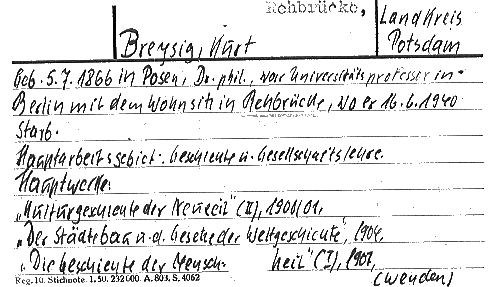 Rehbrücke,
Landkreis
Potsdam
Breysig, Kurt
Geb. 5.7.1866 in Posen, Dr. phil., war Universitätsprofessor in
Berlin mit dem Wohnsitz in Rehbrücke, wo er 16.6.1940
starb.
Hauptarbeitsgebiet: Geschichte u. Gesellschaftslehre.
Hauptwerke:
„Kulturgeschichte der Neuzeit" (II), 1900/01,
„Der Städtebau u. d. Gesetze der Weltgeschichte", 1904,
„Die Geschichte der Mensch- heit" (I), 1907,
Reg. 10. Stichnote. 1. 50. 232000. A. 803. S. 4062
(wenden)